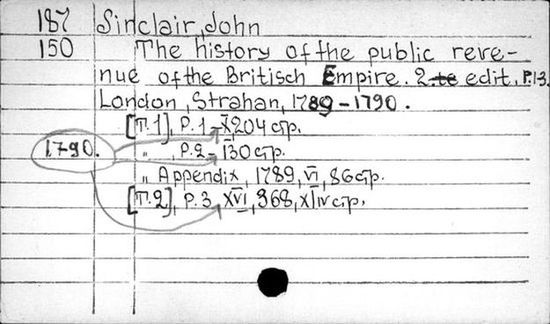 187 Sinclair, John
150 The history of the public reve-
nue of the Britisch Empire. 2 te edit. P.1-3.
London, Strahan, 1789-1790.
[Т.1], P. 1 - X, 204 стр.
1790. " , P. 2 - 130 стр.
" Appendix, 1789, VI, 86 стр.
[Т.2], P. 3 XVI, 368, XLIV стр.